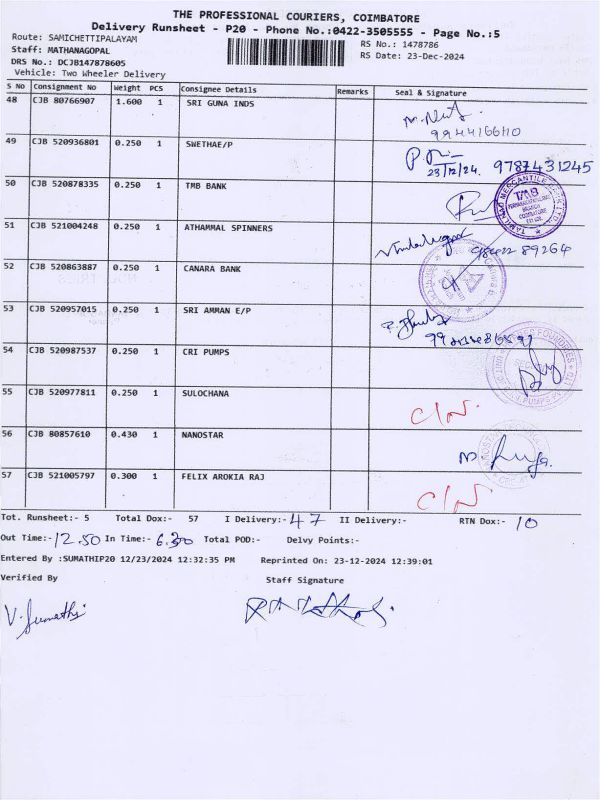 THE PROFESSIONAL COURIERS, COIMBATORE
Delivery Runsheet - P20 - Phone No.:0422-3505555 - Page No.:5
Route: SAMICHETTIPALAYAM
Staff: MATHANAGOPAL
DRS No.: DCJB147878605
Vehicle: Two Wheeler Delivery
RS No.: 1478786
RS Date: 23-Dec-2024
S No Consignment No Weight PCS Consignee Details Remarks Seal & Signature
48 CJB 80766907 1.600 1 SRI GUNA INDS
9944166110
49 CJB 520936801 0.250 1 SWETHAE/P
23/12/24. 9787431245
50 CJB 520878335 0.250 1 TMB BANK
TMB
51 CJB 521004248 0.250 1 ATHAMMAL SPINNERS
89264
52 CJB 520863887 0.250 1 CANARA BANK
53 CJB 520957015 0.250 1 SRI AMMAN E/P
54 CJB 520987537 0.250 1 CRI PUMPS
55 CJB 520977811 0.250 1 SULOCHANA
56 CJB 80857610 0.430 1 NANOSTAR
57 CJB 521005797 0.300 1 FELIX AROKIA RAJ
Tot. Runsheet:- 5 Total Dox:- 57 I Delivery:- 47 II Delivery:- RTN Dox:- 10
Out Time:- 12.50 In Time:- 6.30 Total POD:- Delvy Points:-
Entered By :SUMATHIP20 12/23/2024 12:32:35 PM Reprinted On: 23-12-2024 12:39:01
Verified By Staff Signature
V. Sumathi